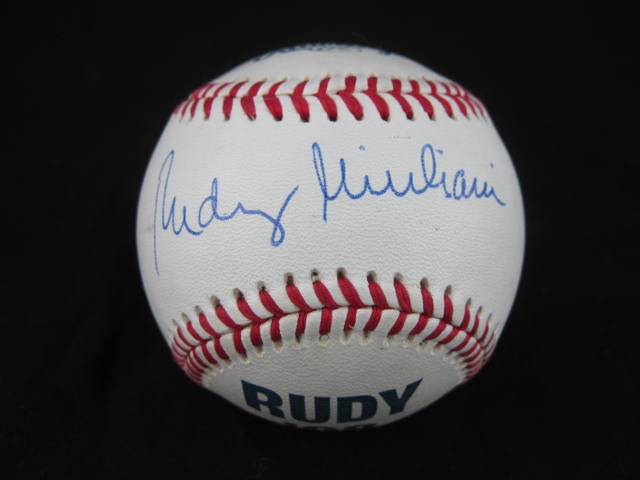 Rudy Giuliani
RUDY